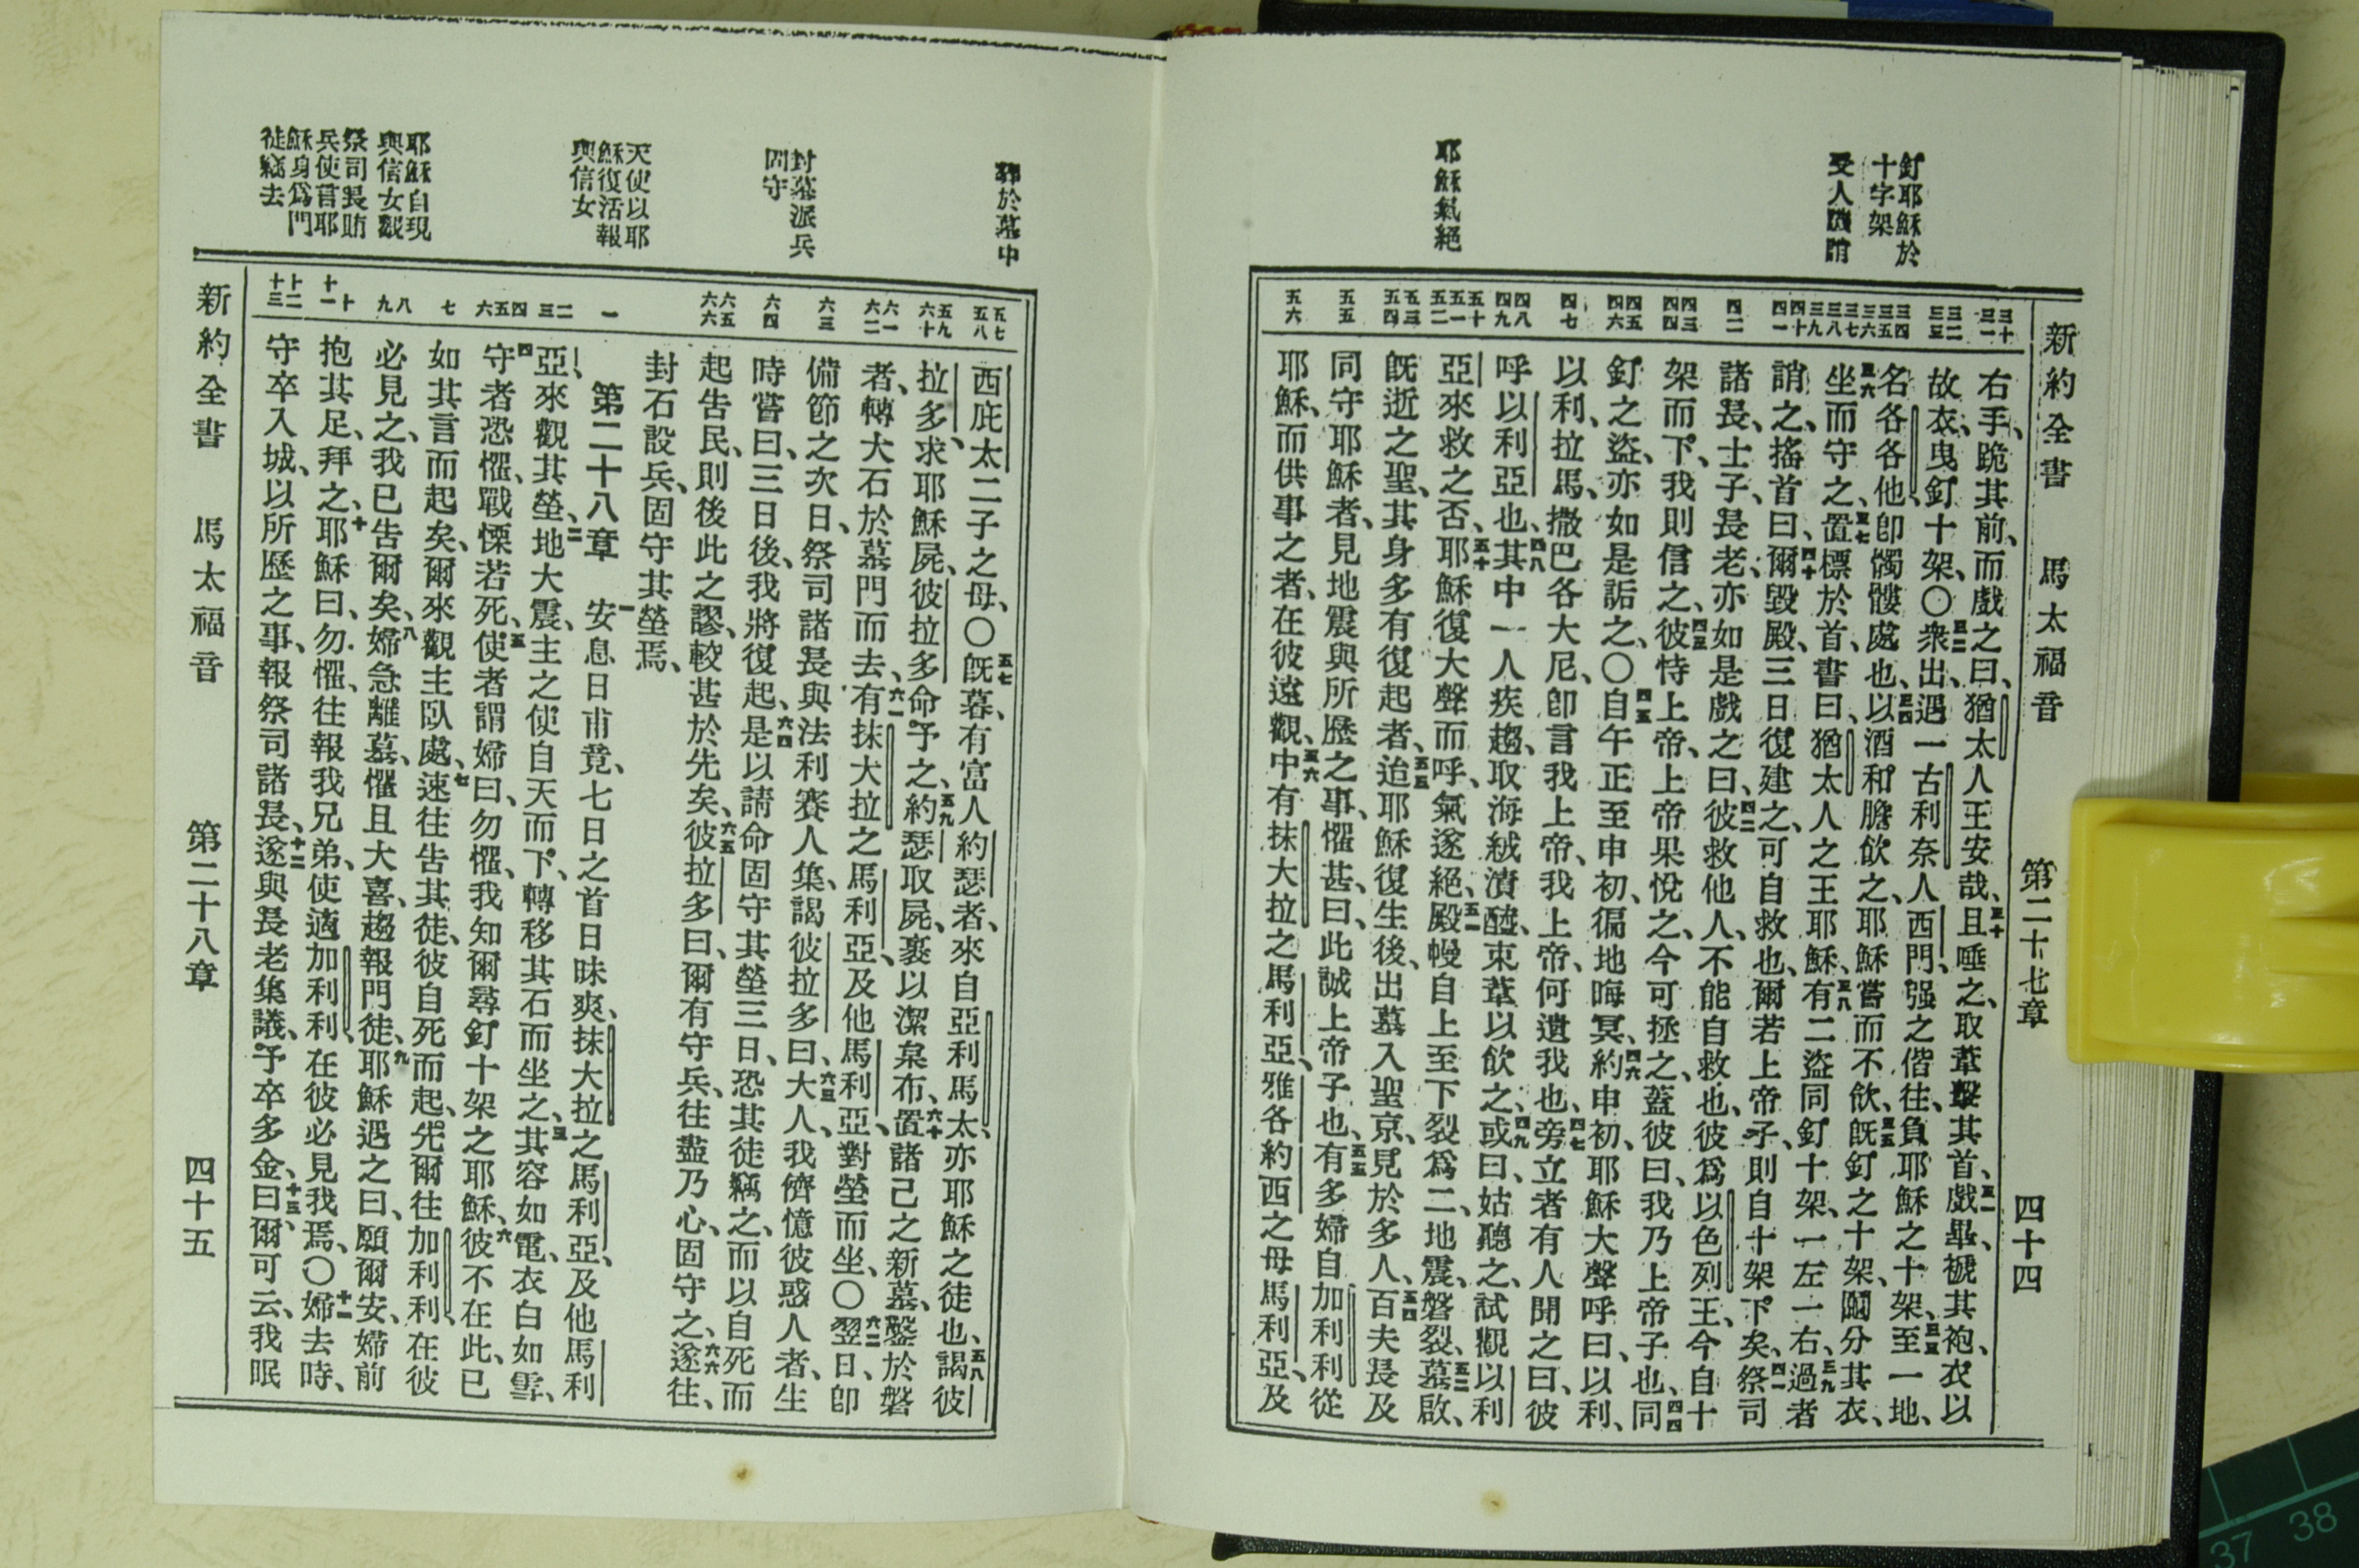 新約全書 馬太福音 第二十七章 四十四
釘耶穌於
十字架
受人譏誚
耶穌氣絕
三十 三一
三二 三三
三四 三五 三六
三七 三八 三九
四十 四一
四二
四三 四四
四五 四六
四七
四八 四九
五十 五一 五二
五三 五四
五五
五六
右手、跪其前、而戲之曰、猶太人王安哉、三十且唾之、取葦擊其首、三一戲畢、褫其袍、衣以
故衣、曳釘十架、〇三二衆出、遇一古利奈人西門、强之偕往、負耶穌之十架、三三至一地、
名各各他、卽髑髏處也、三四以酒和膽飲之、耶穌嘗而不飲、三五旣釘之十架、鬮分其衣、
三六坐而守之、三七置標於首、書曰、猶太人之王耶穌、三八有二盜同釘十架、一左一右、三九過者
誚之、搖首曰、四十爾毀殿、三日復建之、可自救也、爾若上帝子、則自十架下矣、四一祭司
諸長、士子、長老、亦如是戲之曰、四二彼救他人、不能自救也、彼爲以色列王、今自十
架而下、我則信之、四三彼恃上帝、上帝果悅之、今可拯之、蓋彼曰、我乃上帝子也、四四同
釘之盜、亦如是詬之、〇四五自午正至申初、徧地晦冥、四六約申初、耶穌大聲呼曰、以利、
以利、拉馬、撒巴各大尼、卽言我上帝、我上帝、何遺我也、四七旁立者有人聞之曰、彼
呼以利亞也、四八其中一人疾趨、取海絨漬醯、束葦以飲之、四九或曰、姑聽之、試觀以利
亞來救之否、五十耶穌復大聲而呼、氣遂絕、五一殿幔自上至下裂爲二、地震、磐裂、五二墓啟、
旣逝之聖、其身多有復起者、五三迨耶穌復生後、出墓入聖京、見於多人、五四百夫長及
同守耶穌者、見地震與所歷之事、懼甚、曰、此誠上帝子也、五五有多婦自加利利從
耶穌、而供事之者、在彼遠觀、五六中有抹大拉之馬利亞、雅各約西之母馬利亞、及
葬於墓中
封墓派兵
固守
天使以耶
穌復活報
與信女
耶穌自現
與信女觀
祭司長賄
兵使言耶
穌身爲門
徒竊去
五七 五八
五九 六十
六一 六二
六三
六四
六五 六六
一
二 三
四 五 六
七
八 九
十 十一
十二 十三
西庇太二子之母、〇五七旣暮、有富人約瑟者、來自亞利馬太、亦耶穌之徒也、五八謁彼
拉多、求耶穌屍、彼拉多命予之、五九約瑟取屍、裹以潔枲布、六十置諸己之新墓、鑿於磐
者、轉大石於墓門而去、六一有抹大拉之馬利亞、及他馬利亞、對塋而坐、〇六二翌日、卽
備節之次日、祭司諸長與法利賽人集、謁彼拉多曰、六三大人、我儕憶彼惑人者、生
時嘗曰、三日後、我將復起、六四是以請命固守其塋三日、恐其徒竊之、而以自死而
起告民、則後此之謬、較甚於先矣、六五彼拉多曰、爾有守兵、往盡乃心、固守之、六六遂往、
封石設兵、固守其塋焉、
第二十八章 一安息日甫竟、七日之首日昧爽、抹大拉之馬利亞、及他馬利
亞、來觀其塋、二地大震、主之使自天而下、轉移其石而坐之、三其容如電、衣白如雪、
四守者恐懼、戰慄若死、五使者謂婦曰、勿懼、我知爾尋釘十架之耶穌、六彼不在此、已
如其言而起矣、爾來觀主臥處、七速往告其徒、彼自死而起、先爾往加利利、在彼
必見之、我已告爾矣、八婦急離墓、懼且大喜、趨報門徒、九耶穌遇之曰、願爾安、婦前
抱其足、拜之、十耶穌曰、勿懼、往報我兄弟、使適加利利、在彼必見我焉、〇十一婦去時、
守卒入城、以所歷之事、報祭司諸長、十二遂與長老集議、予卒多金、十三曰、爾可云、我眠
新約全書 馬太福音 第二十八章 四十五
37 38